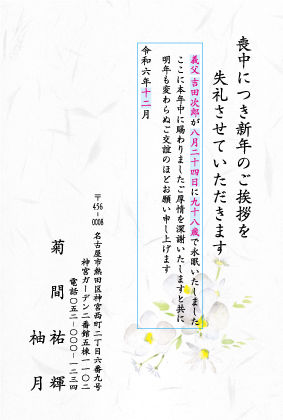 喪中につき新年のご挨拶を
失礼させていただきます
義父 吉田次郎が八月二十四日に九十八歳で永眠いたしました
ここに本年中に賜わりましたご厚情を深謝いたしますと共に
明年も変わらぬご交誼のほどお願い申し上げます
令和六年十二月
〒456-0008
名古屋市熱田区神宮西町二丁目六番九号
神宮ガーデン二番館五棟一一〇二
電話〇五二-〇〇〇-一二三四
菊間 祐輝
柚月